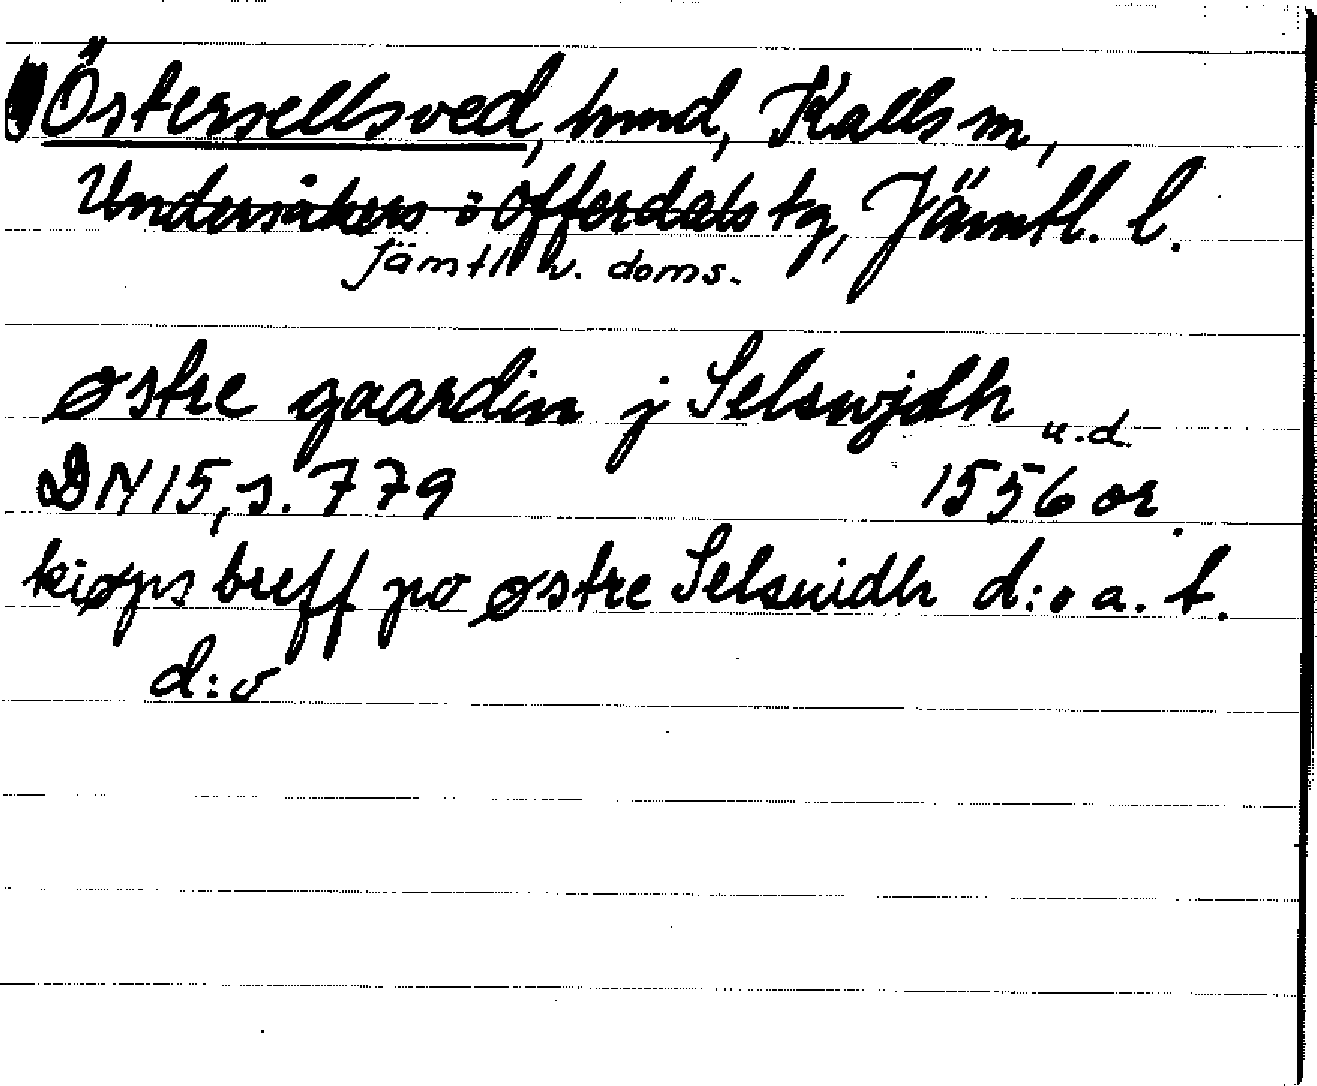 Östersellsved, hmd, Kalls sn,
Undersåkers o Offerdals tg, Jämtl. l.
Jämtl. v. doms.
østre gaardin j Selswjdh u.d.
DN 15, s. 779 1556 or.
kiøps breff po østre Selsuidh d:o a. t.
d:o